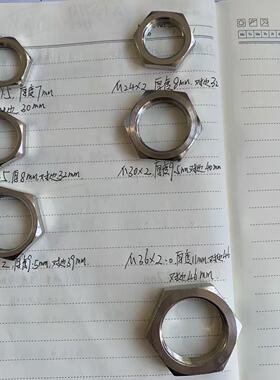 M24×2. 厚度8mm. 对边32
.5, 厚度7mm
对边 30mm
M30×2 厚度9.5mm 对边40mm
.5 厚8mm 对边32mm
M36×2.0 厚度11mm, 对边46
对边46mm
2. 厚度9.5mm, 对边39mm.